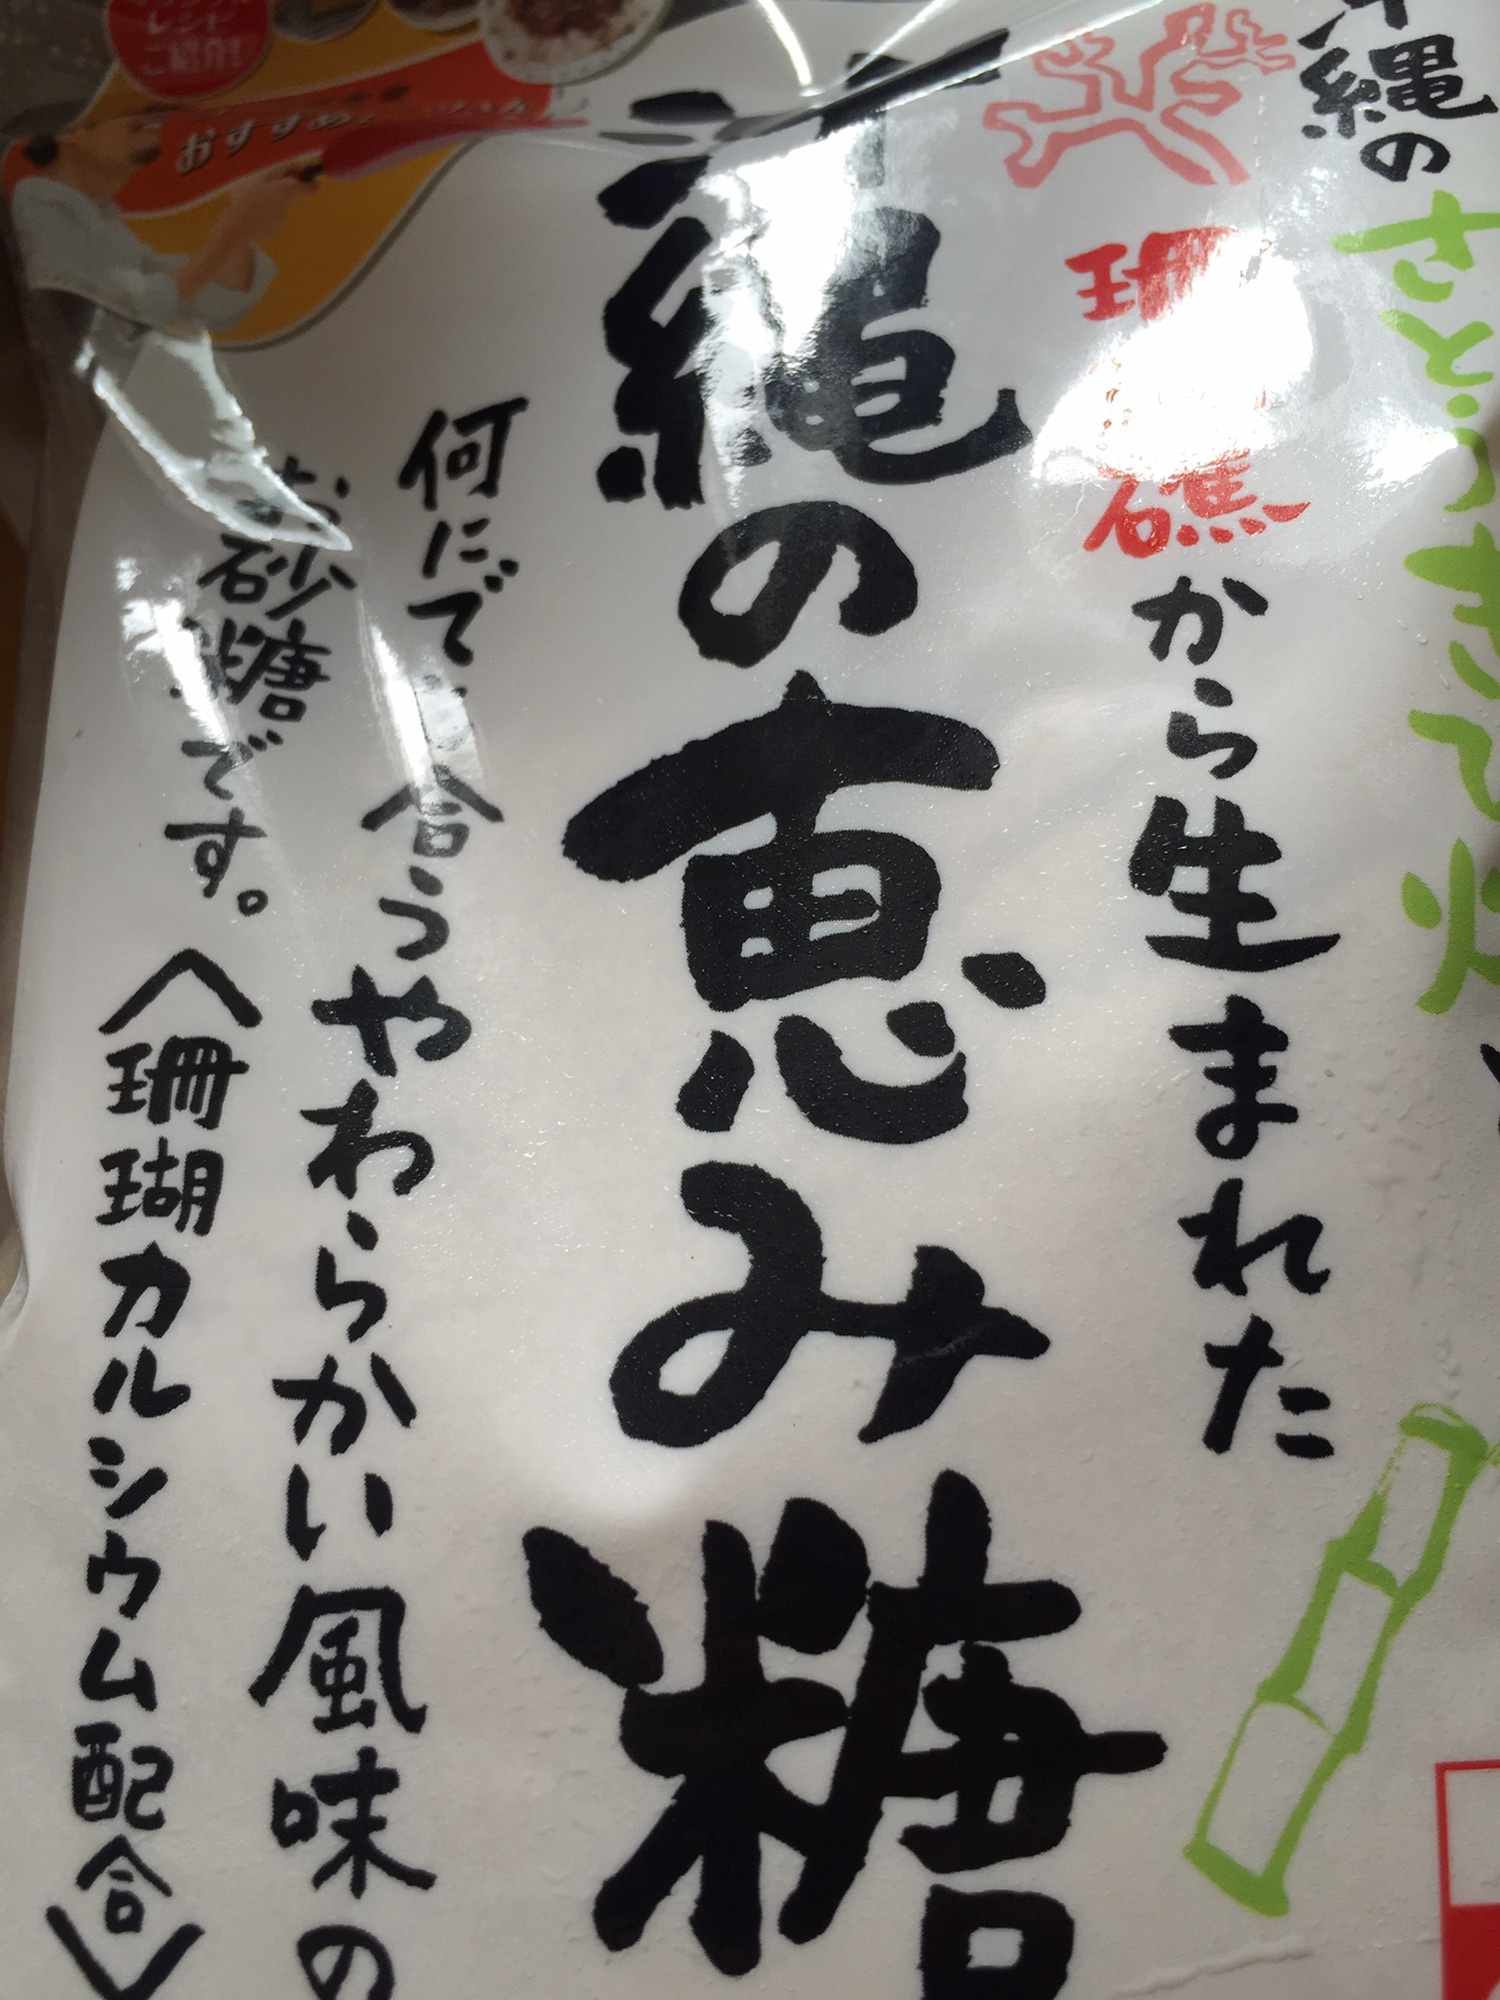 沖縄の
さとうきび
珊瑚礁
から生まれた
沖縄の恵み糖
何にでも合うやわらかい風味の
お砂糖です。
〈珊瑚カルシウム配合〉
レンド
ご紹介!
おすすめ